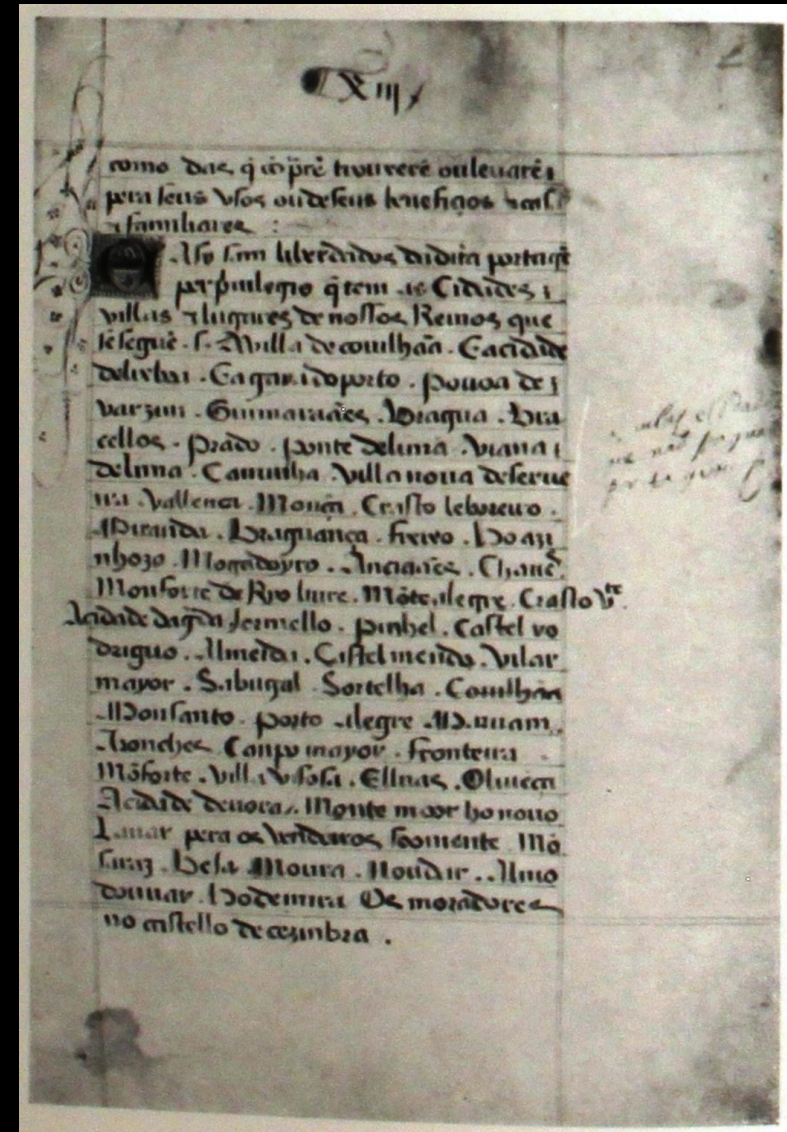 Xiij
como das q̃ cõprẽ trouverẽ ou levarẽ
pera seus vsos ou de seus beneficios
⁊ familiares :
E Asy sam liberdadas da dita portagẽ
per priuilegio q̃ tem as Cidades ⁊
villas ⁊ lugares de nossos Reinos que
se seguẽ . s . A villa de couilhãa . E a cidade
de lixboa . E a gaia do porto . pouoa de
varzim . Guimaraães . Bragua . Bra
cellos . prado . ponte de lima . viana
de lima . Caminha . Villa noua de serue
ira . Vallença . Monçã . Crasto leboreiro .
Miranda . Bragança . freixo . Ho azi
nhozo . Mogadoyro . Anciaães . Chauẽs
Monforte de Ryo liure . Mõte alegre . Crasto Vte
A cidade da gda Jermello . pinhel . Castel ro
driguo . Almeida . Castel mendo . Vilar
mayor . Sabugal . Sortelha . Couilhãa
Monsanto . porto alegre . Maruam .
Aronches . Canpo mayor . fronteira
Mõforte . Villa vysosa . Elluas . Oliuença
A cidade deuora . Monte moor ho nouo
Lauar pera os vendeiros soomente . Mõ
saraz . Beja . Moura . Noudar . Almo
douuar . Hodemira . Os moradores
no castello de cezinbra .